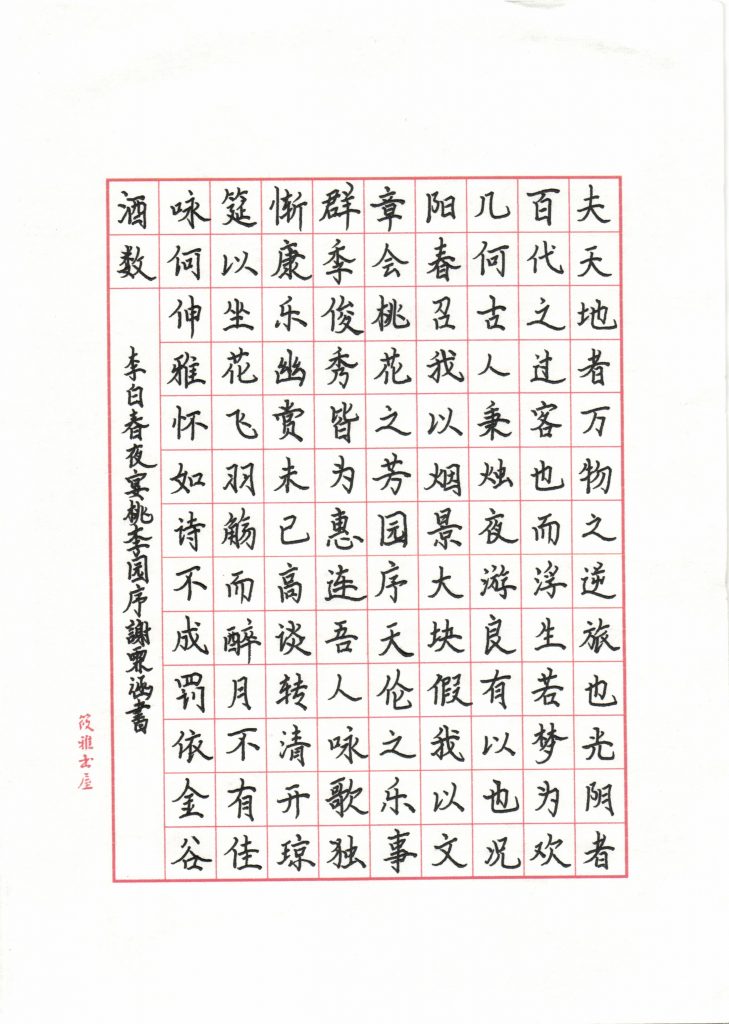 夫天地者万物之逆旅也光阴者
百代之过客也而浮生若梦为欢
几何古人秉烛夜游良有以也况
阳春召我以烟景大块假我以文
章会桃花之芳园序天伦之乐事
群季俊秀皆为惠连吾人咏歌独
惭康乐幽赏未已高谈转清开琼
筵以坐花飞羽觞而醉月不有佳
咏何伸雅怀如诗不成罚依金谷
酒数
李白春夜宴桃李园序謝粟涵書
筱雅书屋